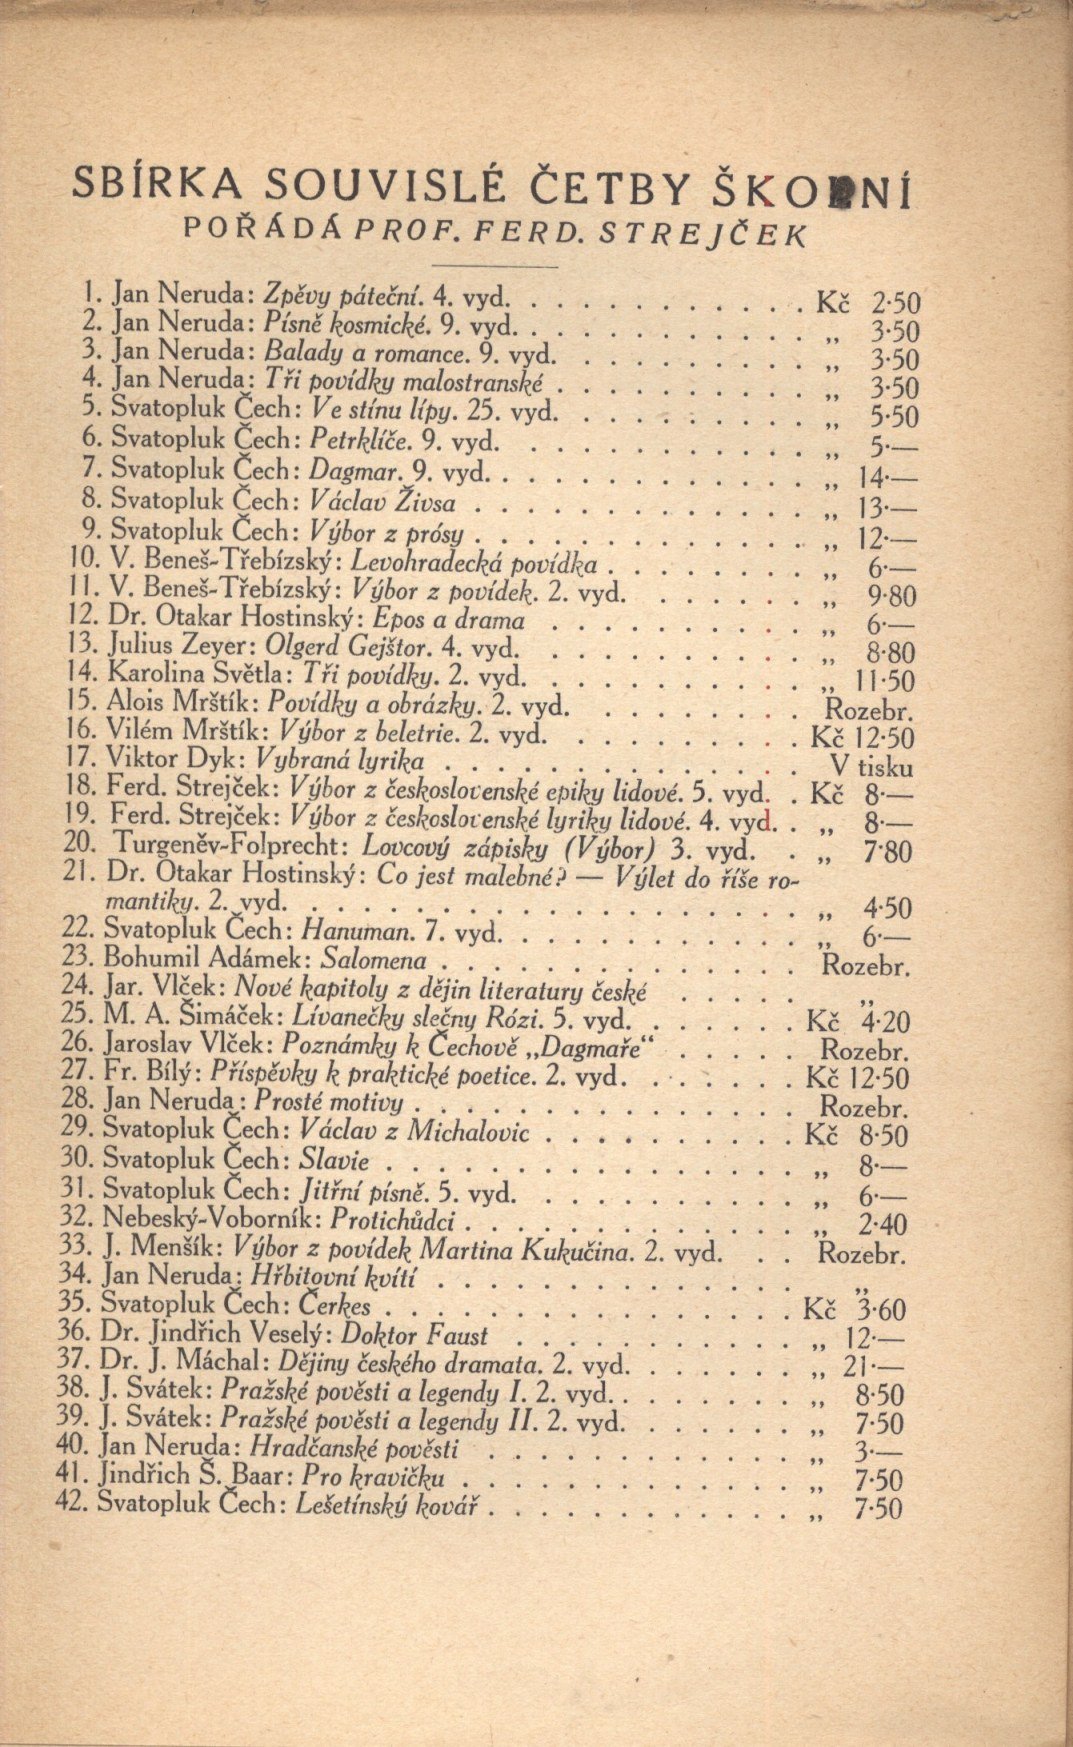 SBÍRKA SOUVISLÉ ČETBY ŠKOLNÍ
POŘÁDÁ PROF. FERD. STREJČEK
1. Jan Neruda: Zpěvy páteční. 4. vyd. . . . . . . . . . . . Kč 2·50
2. Jan Neruda: Písně kosmické. 9. vyd. . . . . . . . . . . . „ 3·50
3. Jan Neruda: Balady a romance. 9. vyd. . . . . . . . . . . „ 3·50
4. Jan Neruda: Tři povídky malostranské . . . . . . . . . . „ 3·50
5. Svatopluk Čech: Ve stínu lípy. 25. vyd. . . . . . . . . . „ 5·50
6. Svatopluk Čech: Petrklíče. 9. vyd. . . . . . . . . . . . „ 5·—
7. Svatopluk Čech: Dagmar. 9. vyd. . . . . . . . . . . . . . „ 14·—
8. Svatopluk Čech: Václav Živsa . . . . . . . . . . . . . „ 13·—
9. Svatopluk Čech: Výbor z prósy . . . . . . . . . . . . . „ 12·—
10. V. Beneš-Třebízský: Levohradecká povídka . . . . . . . . „ 6·—
11. V. Beneš-Třebízský: Výbor z povídek. 2. vyd. . . . . . . „ 9·80
12. Dr. Otakar Hostinský: Epos a drama . . . . . . . . . . „ 6·—
13. Julius Zeyer: Olgerd Gejštor. 4. vyd. . . . . . . . . . . „ 8·80
14. Karolina Světla: Tři povídky. 2. vyd. . . . . . . . . . . „ 11·50
15. Alois Mrštík: Povídky a obrázky. 2. vyd. . . . . . . . . Rozebr.
16. Vilém Mrštík: Výbor z beletrie. 2. vyd. . . . . . . . . . Kč 12·50
17. Viktor Dyk: Vybraná lyrika . . . . . . . . . . . . . . V tisku
18. Ferd. Strejček: Výbor z československé epiky lidové. 5. vyd. . Kč 8·—
19. Ferd. Strejček: Výbor z československé lyriky lidové. 4. vyd. . „ 8·—
20. Turgeněv-Folprecht: Lovcový zápisky (Výbor) 3. vyd. . „ 7·80
21. Dr. Otakar Hostinský: Co jest malebné? — Výlet do říše ro-
mantiky. 2. vyd. . . . . . . . . . . . . . . . . . . . „ 4·50
22. Svatopluk Čech: Hanuman. 7. vyd. . . . . . . . . . . . . „ 6·—
23. Bohumil Adámek: Salomena . . . . . . . . . . . . . . Rozebr.
24. Jar. Vlček: Nové kapitoly z dějin literatury české . . . . . „
25. M. A. Šimáček: Lívanečky slečny Rózi. 5. vyd. . . . . . . Kč 4·20
26. Jaroslav Vlček: Poznámky k Čechově „Dagmaře“ . . . . . Rozebr.
27. Fr. Bílý: Příspěvky k praktické poetice. 2. vyd. . . . . . . Kč 12·50
28. Jan Neruda: Prosté motivy . . . . . . . . . . . . . . . Rozebr.
29. Svatopluk Čech: Václav z Michalovic . . . . . . . . . . Kč 8·50
30. Svatopluk Čech: Slavie . . . . . . . . . . . . . . . . „ 8·—
31. Svatopluk Čech: Jitřní písně. 5. vyd. . . . . . . . . . . „ 6·—
32. Nebeský-Voborník: Protichůdci . . . . . . . . . . . . . „ 2·40
33. J. Menšík: Výbor z povídek Martina Kukučina. 2. vyd. . . Rozebr.
34. Jan Neruda: Hřbitovní kvítí . . . . . . . . . . . . . . „
35. Svatopluk Čech: Čerkes . . . . . . . . . . . . . . . . Kč 3·60
36. Dr. Jindřich Veselý: Doktor Faust . . . . . . . . . . . „ 12·—
37. Dr. J. Máchal: Dějiny českého dramata. 2. vyd. . . . . . . „ 21·—
38. J. Svátek: Pražské pověsti a legendy I. 2. vyd. . . . . . . . „ 8·50
39. J. Svátek: Pražské pověsti a legendy II. 2. vyd. . . . . . . „ 7·50
40. Jan Neruda: Hradčanské pověsti . . . . . . . . . . . . „ 3·—
41. Jindřich Š. Baar: Pro kravičku . . . . . . . . . . . . . „ 7·50
42. Svatopluk Čech: Lešetínský kovář . . . . . . . . . . . . „ 7·50